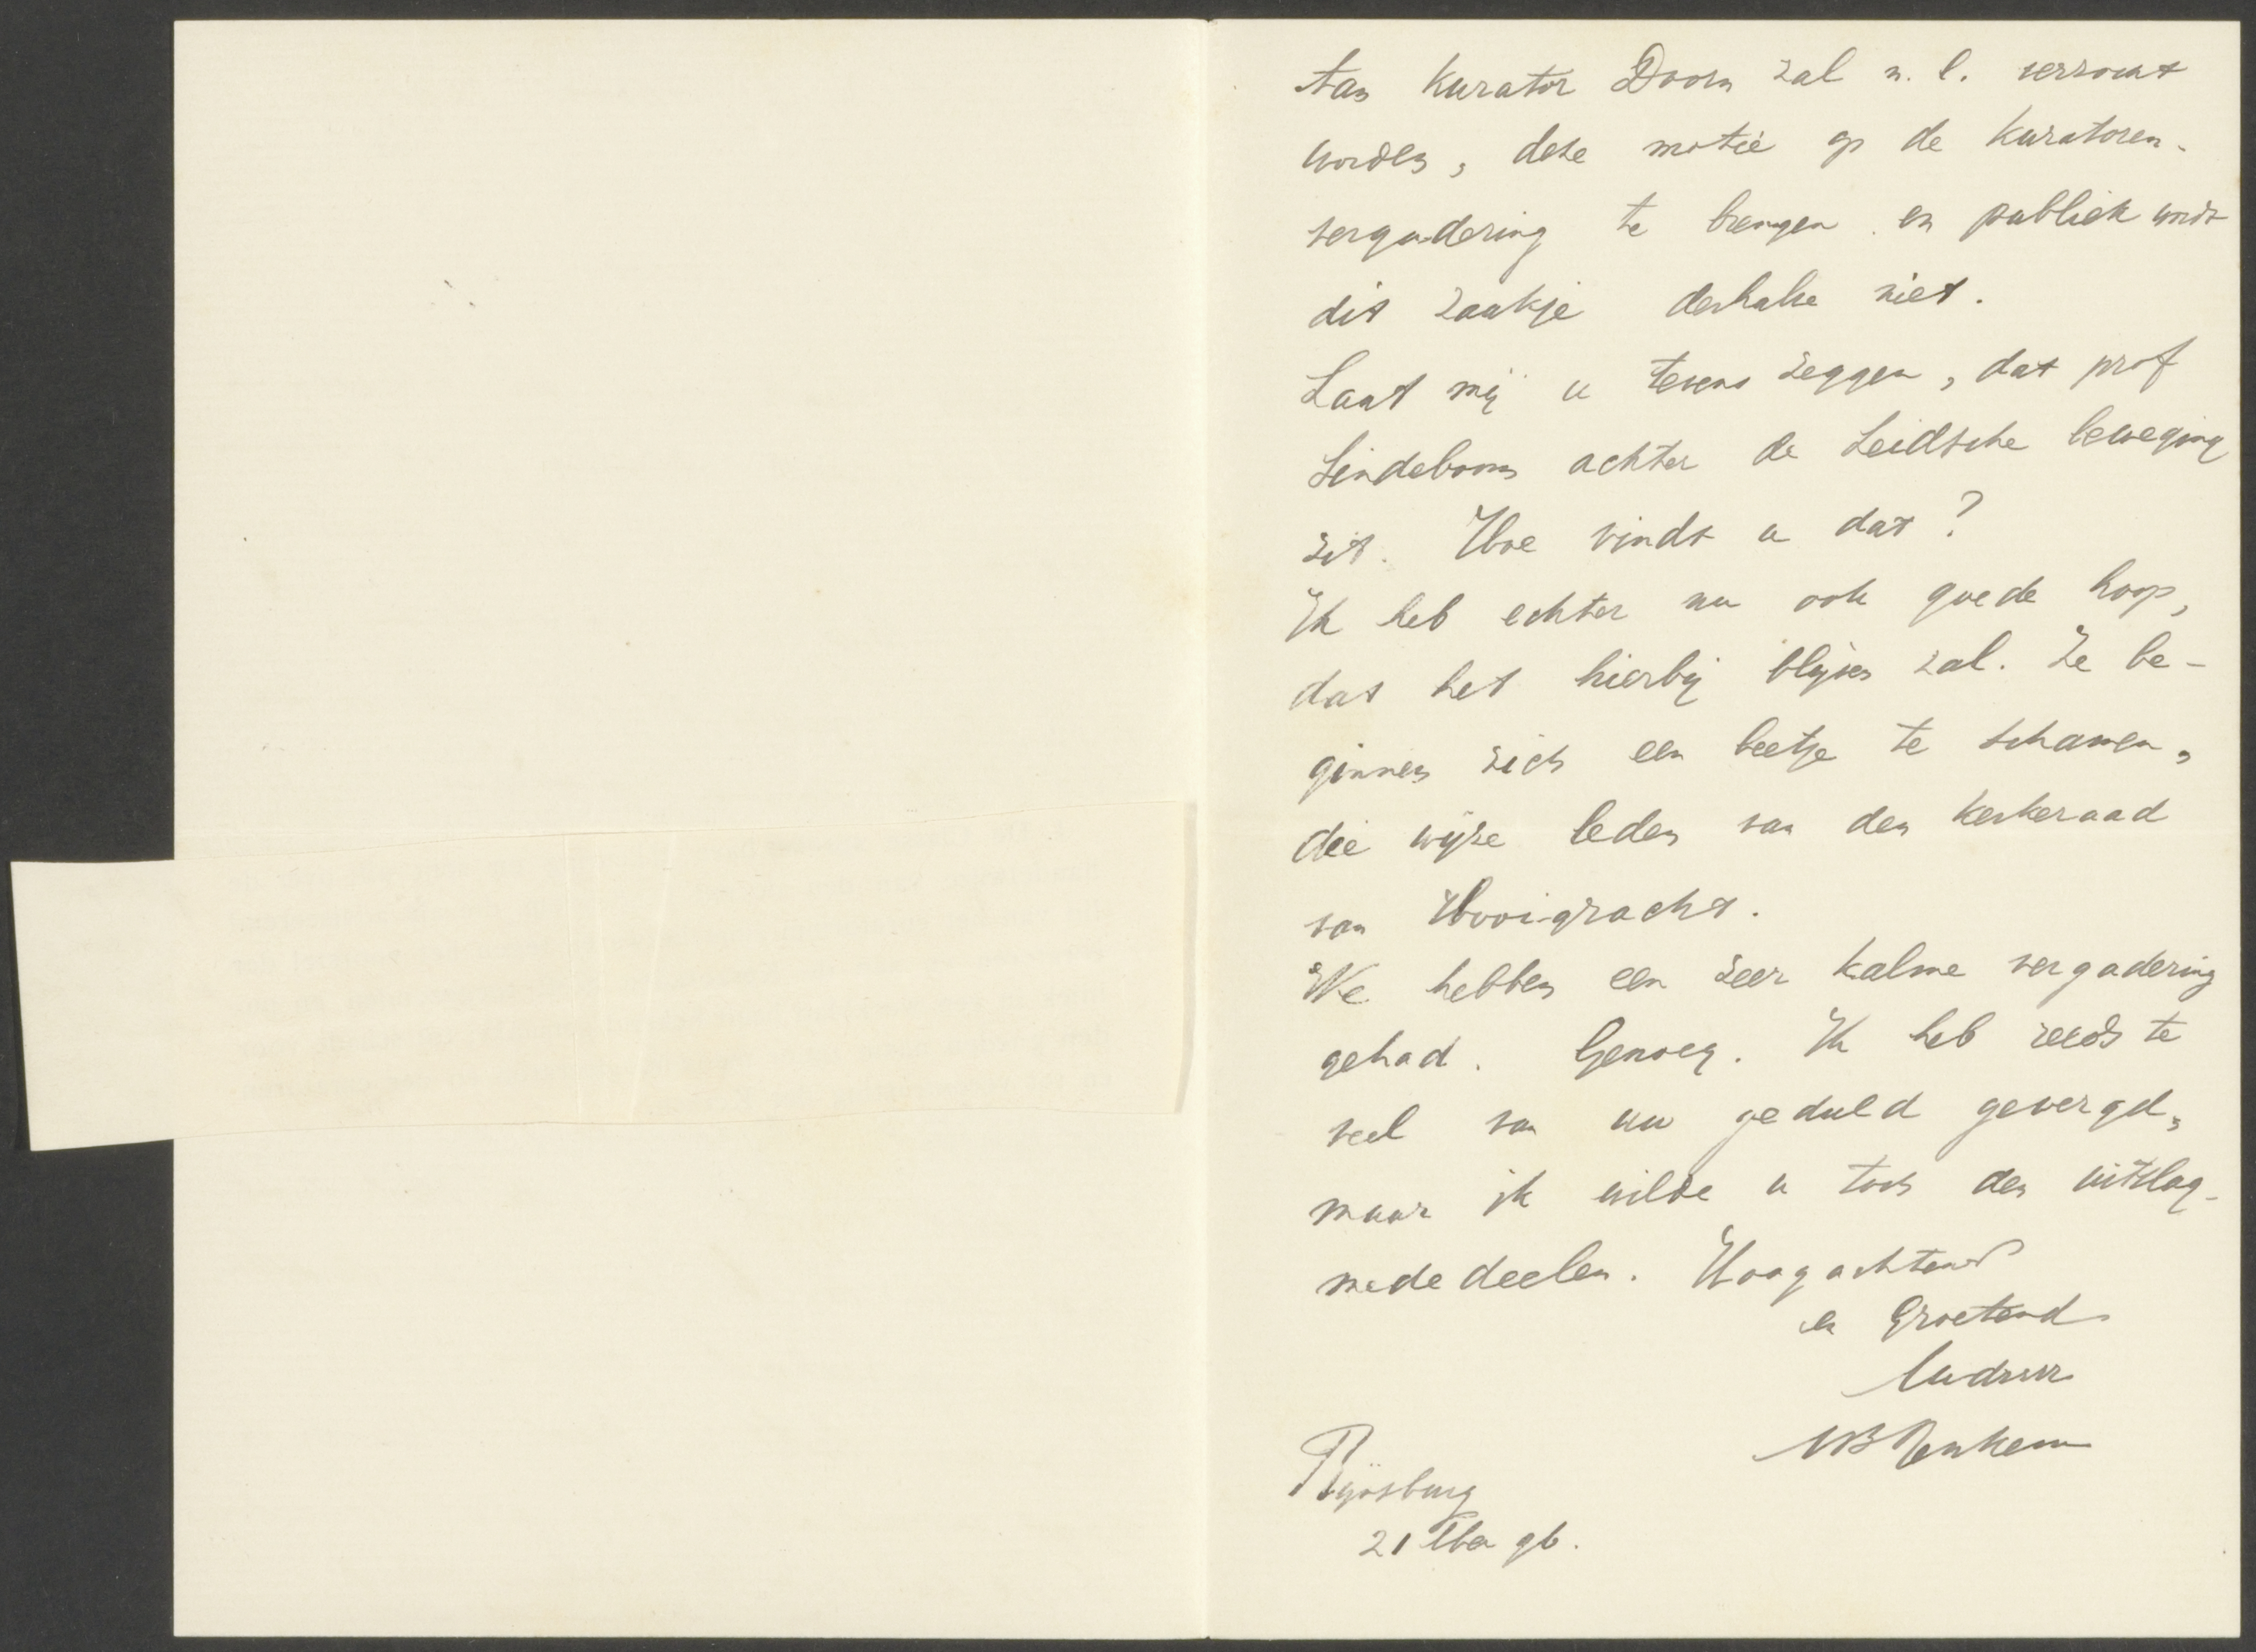 Aan Kurator Doorn zal n.l. verzocht
worden, deze motie op de Kuratoren-
vergadering te brengen en publiek wordt
dit zaakje derhalve niet.
Laat mij u tevens zeggen, dat prof
Lindeboom achter de Leidsche beweging
zit. Hoe vindt u dat?
Ik heb echter nu ook goede hoop,
dat het hierbij blijven zal. Ze be-
ginnen zich een beetje te schamen,
die wijze leden van den kerkeraad
van Hooigracht.
We hebben een zeer kalme vergadering
gehad. Genoeg. Ik heb reeds te
veel van uw geduld gevergd,
maar ik wilde u toch den uitslag
mededeelen. Hoogachtend
en Groetend
Rijnsburg
21 96.